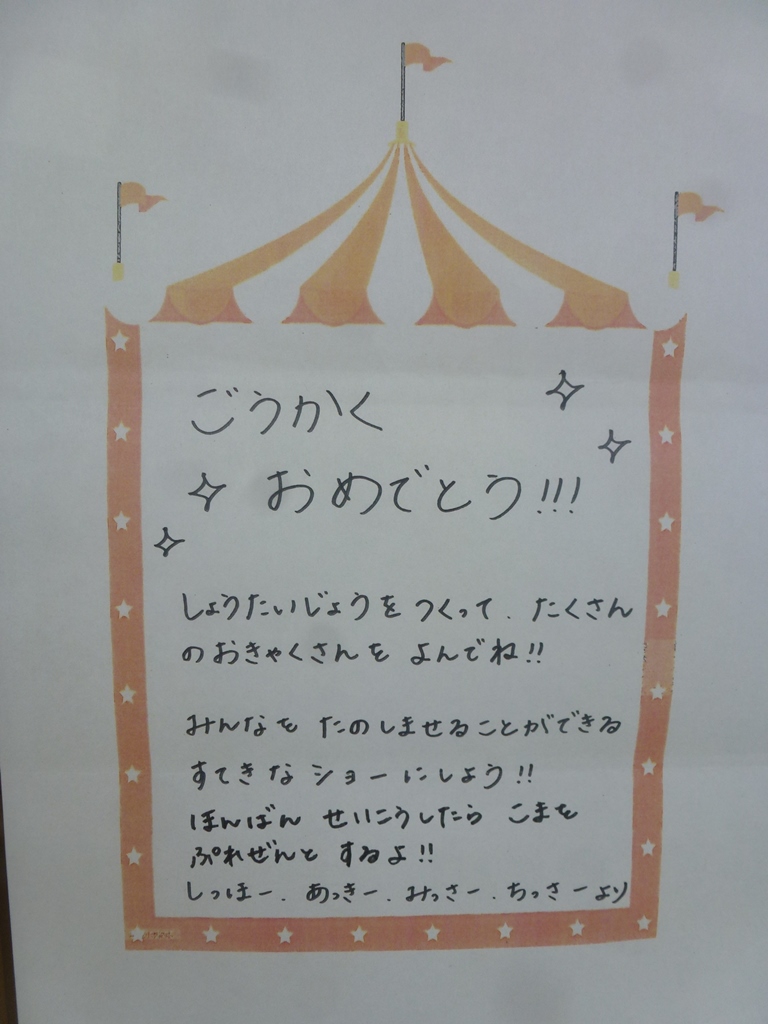 ごうかく
おめでとう!!!
しょうたいじょうを つくって、たくさん
のおきゃくさんを よんでね!!
みんなを たのしませることができる
すてきなショーにしよう!!
ほんばん せいこうしたら こまを
ぷれぜんと するよ!!
しっほー、あっきー、みっさー、ちっさーより